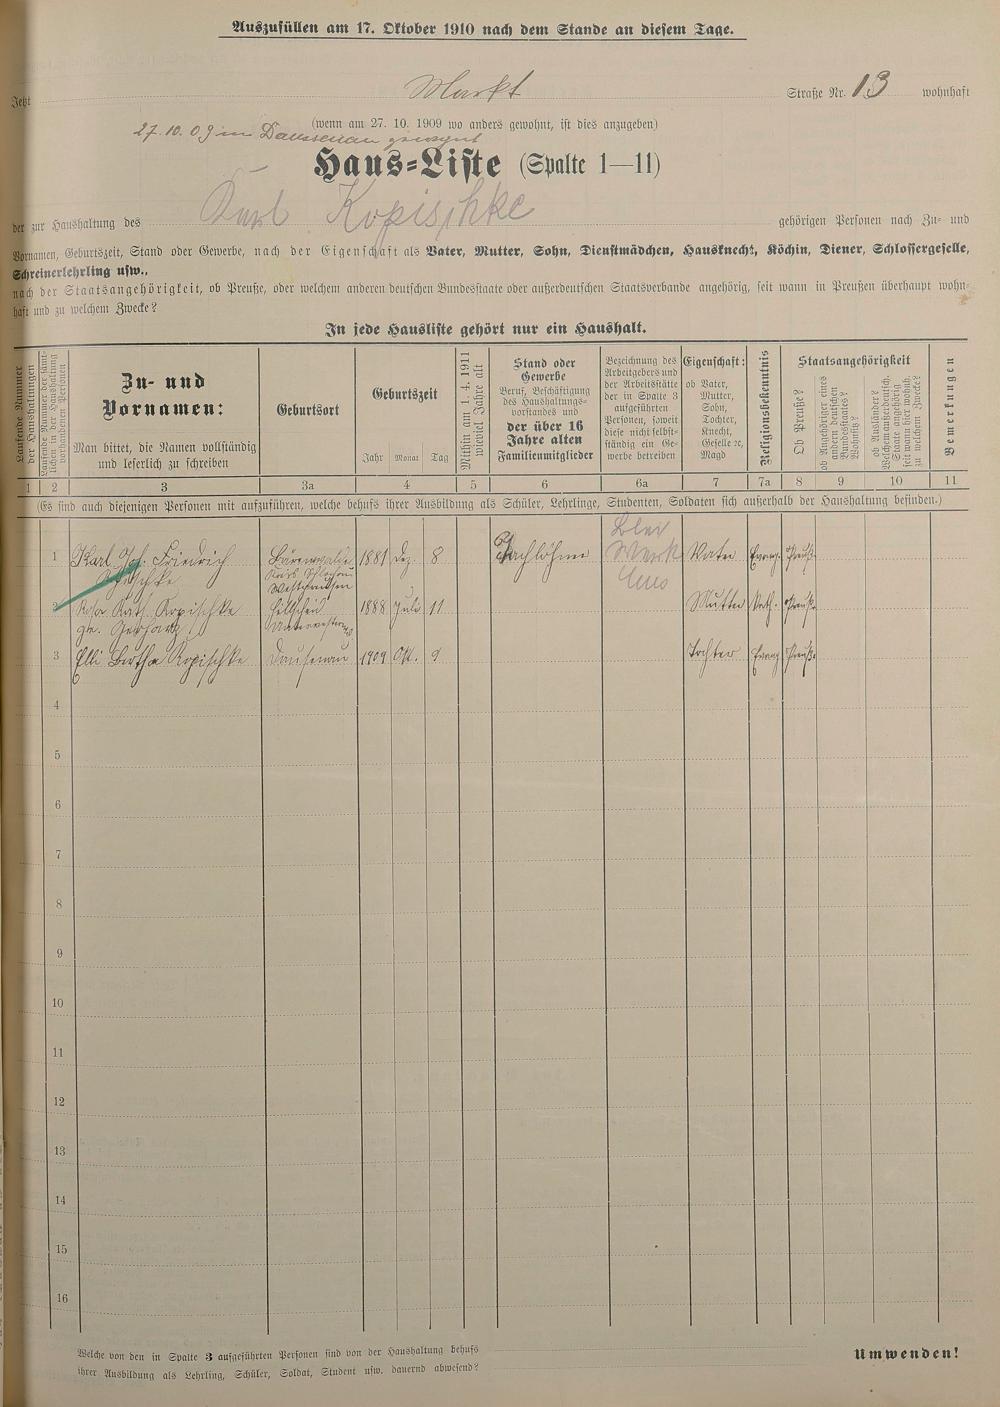 Auszufüllen am 17. Oktober 1910 nach dem Stande an diesem Tage.
Jetzt Markt Straße Nr. 13 wohnhaft
(wenn am 27. 10. 1909 wo anders gewohnt, ist dies anzugeben)
27. 10. 09 in Daussenau gewohnt
Haus-Liste (Spalte 1—11)
der zur Haushaltung des Karl Kopischke gehörigen Personen nach Zu- und
Vornamen, Geburtszeit, Stand oder Gewerbe, nach der Eigenschaft als Vater, Mutter, Sohn, Dienstmädchen, Hausknecht, Köchin, Diener, Schlossergeselle,
Schreinerlehrling usw.,
nach der Staatsangehörigkeit, ob Preuße, oder welchem anderen deutschen Bundesstaate oder außerdeutschen Staatsverbande angehörig, seit wann in Preußen überhaupt wohn-
haft und zu welchem Zwecke?
In jede Hausliste gehört nur ein Haushalt.
Laufende Nummer
der Haushaltungen
Laufende Nummer der sämt-
lichen in der Haushaltung
vorhandenen Personen
Zu- und
Vornamen:
Man bittet, die Namen vollständig
und leserlich zu schreiben
Geburtsort
Geburtszeit
Jahr Monat Tag
Mithin am 1. 4. 1911
wieviel Jahre alt
Stand oder
Gewerbe
Beruf, Beschäftigung
des Haushaltungs-
vorstandes und
der über 16
Jahre alten
Familienmitglieder
Bezeichnung des
Arbeitgebers und
der Arbeitsstätte
der in Spalte 3
aufgeführten
Personen, soweit
diese nicht selbst-
ständig ein Ge-
werbe betreiben
Eigenschaft:
ob Vater,
Mutter,
Sohn,
Tochter,
Knecht,
Geselle ꝛc,
Magd
Religionsbekenntnis
Staatsangehörigkeit
Ob Preuße?
ob Angehöriger eines
andern deutschen
Bundesstaates?
Wohnsitz?
ob Ausländer?
Welchem außerdeutsch.
Staate angehörig
seit wann hier wohnh.
zu welchem Zwecke?
Bemerkungen
1 2 3 3a 4 5 6 6a 7 7a 8 9 10 11
(Es sind auch diejenigen Personen mit aufzuführen, welche behufs ihrer Ausbildung als Schüler, Lehrlinge, Studenten, Soldaten sich außerhalb der Haushaltung befinden.)
1 Karl Joh. Friedrich Bärenwalde 1881 Dez. 8 Tachlöhner Blei Vater Evang. Preuß.
Kopischke Kreis Schlochau Werk
Westpreußen Ems
2 Rosa Kath. Kopischke Hillscheid 1888 Juli 11 Mutter Kath. Preuß.
ge. Gerharz Unterwesterw.
3 Elli Bertha Kopischke Dausenau 1909 Okt. 9 Tochter Evang Preuß.
4
5
6
7
8
9
10
11
12
13
14
15
16
Welche von den in Spalte 3 aufgeführten Personen sind von der Haushaltung behufs
ihrer Ausbildung als Lehrling, Schüler, Soldat, Student usw. dauernd abwesend?
Umwenden!